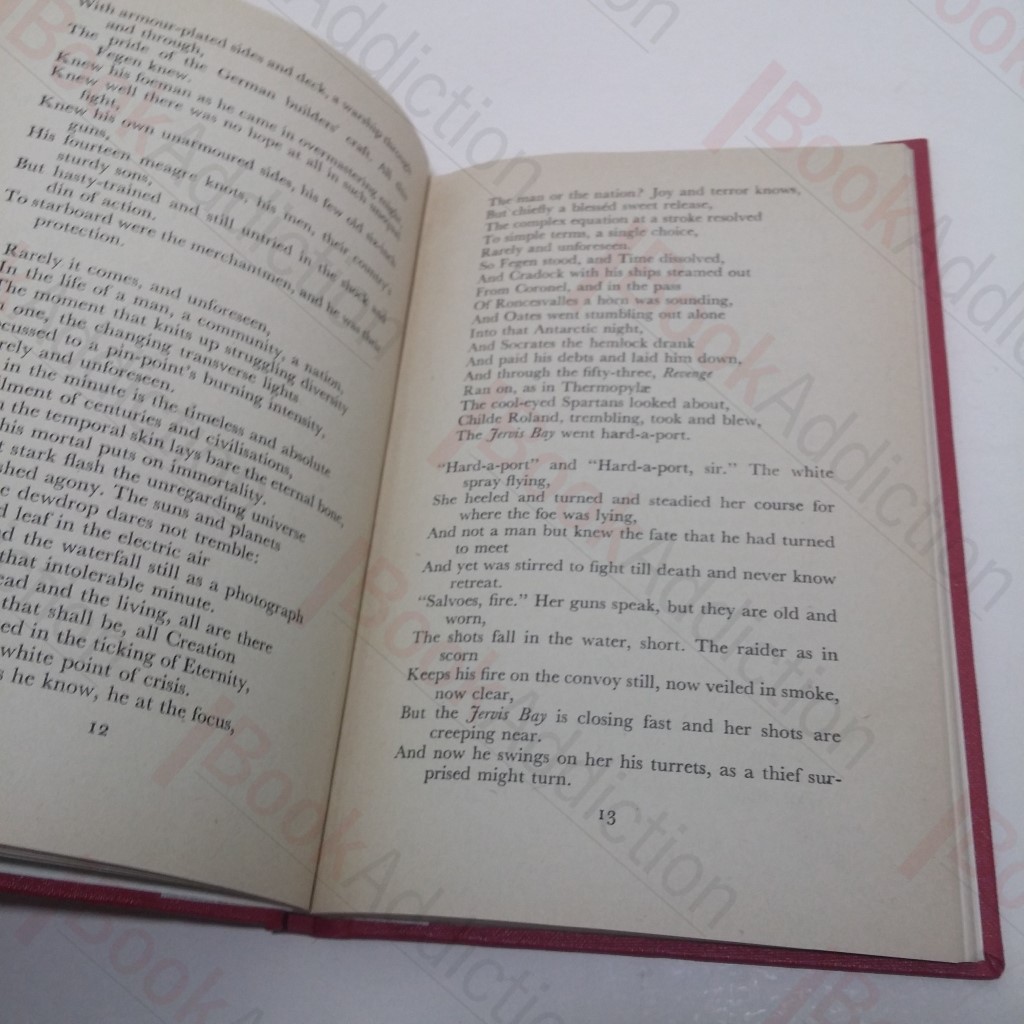 With armour-plated sides and deck, a warship through
and through,
The pride of the German builders' craft. All this
Fegen knew.
Knew his foeman as he came in overmastering might,
Knew well there was no hope at all in such unequal
fight,
Knew his own unarmoured sides, his few old six-inch
guns,
His fourteen meagre knots, his men, their country's
sturdy sons,
But hasty-trained and still untried in the shock and
din of action.
To starboard were the merchantmen, and he was their
protection.
Rarely it comes, and unforeseen,
In the life of a man, a community, a nation,
The moment that knits up struggling diversity
one, the changing transverse lights
ocussed to a pin-point's burning intensity,
rely and unforeseen.
in the minute is the timeless and absolute
lment of centuries and civilisations,
the temporal skin lays bare the eternal bone,
his mortal puts on immortality.
stark flash the unregarding universe
shed agony. The suns and planets
dewdrop dares not tremble:
leaf in the electric air
d the waterfall still as a photograph
that intolerable minute.
ead and the living, all are there
that shall be, all Creation
ed in the ticking of Eternity,
white point of crisis.
he know, he at the focus,
12
The man or the nation? Joy and terror knows,
But chiefly a blessèd sweet release,
The complex equation at a stroke resolved
To simple terms, a single choice,
Rarely and unforeseen.
So Fegen stood, and Time dissolved,
And Cradock with his ships steamed out
From Coronel, and in the pass
Of Roncesvalles a horn was sounding,
And Oates went stumbling out alone
Into that Antarctic night,
And Socrates the hemlock drank
And paid his debts and laid him down,
And through the fifty-three, Revenge
Ran on, as in Thermopylæ
The cool-eyed Spartans looked about,
Childe Roland, trembling, took and blew,
The Jervis Bay went hard-a-port.
"Hard-a-port" and "Hard-a-port, sir." The white
spray flying,
She heeled and turned and steadied her course for
where the foe was lying,
And not a man but knew the fate that he had turned
to meet
And yet was stirred to fight till death and never know
retreat.
"Salvoes, fire." Her guns speak, but they are old and
worn,
The shots fall in the water, short. The raider as in
scorn
Keeps his fire on the convoy still, now veiled in smoke,
now clear,
But the Jervis Bay is closing fast and her shots are
creeping near.
And now he swings on her his turrets, as a thief sur-
prised might turn.
13
BookAddiction